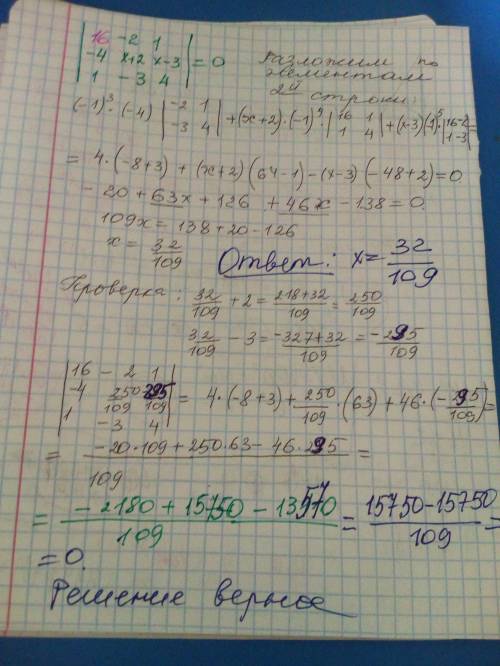 |16 -2 1|
|-4 x+2 x-3| = 0
|1 -3 4|
Разложим по
элементам
2й
строки:
(-1)³·(-4) |-2 1; -3 4| + (x+2)·(-1)⁴·|16 1; 1 4| + (x-3)(-1)⁵·|16 -2; 1 -3| =
= 4·(-8+3) + (x+2)(64-1) - (x-3)(-48+2) = 0
- 20 + 63x + 126 + 46x - 138 = 0.
109x = 138 + 20 - 126
x = 32/109
Ответ: x = 32/109
Проверка: 32/109 + 2 = 218+32/109 = 250/109
32/109 - 3 = -327+32/109 = -295/109
|16 -2 1|
|-4 250/109 -295/109| = 4·(-8+3) + 250/109·(63) + 46·(-295/109) =
|1 -3 4|
= -20·109 + 250·63 - 46·295/109 =
= -2180 + 15750 - 13570/109 = 15750-15750/109 =
= 0.
Решение верное